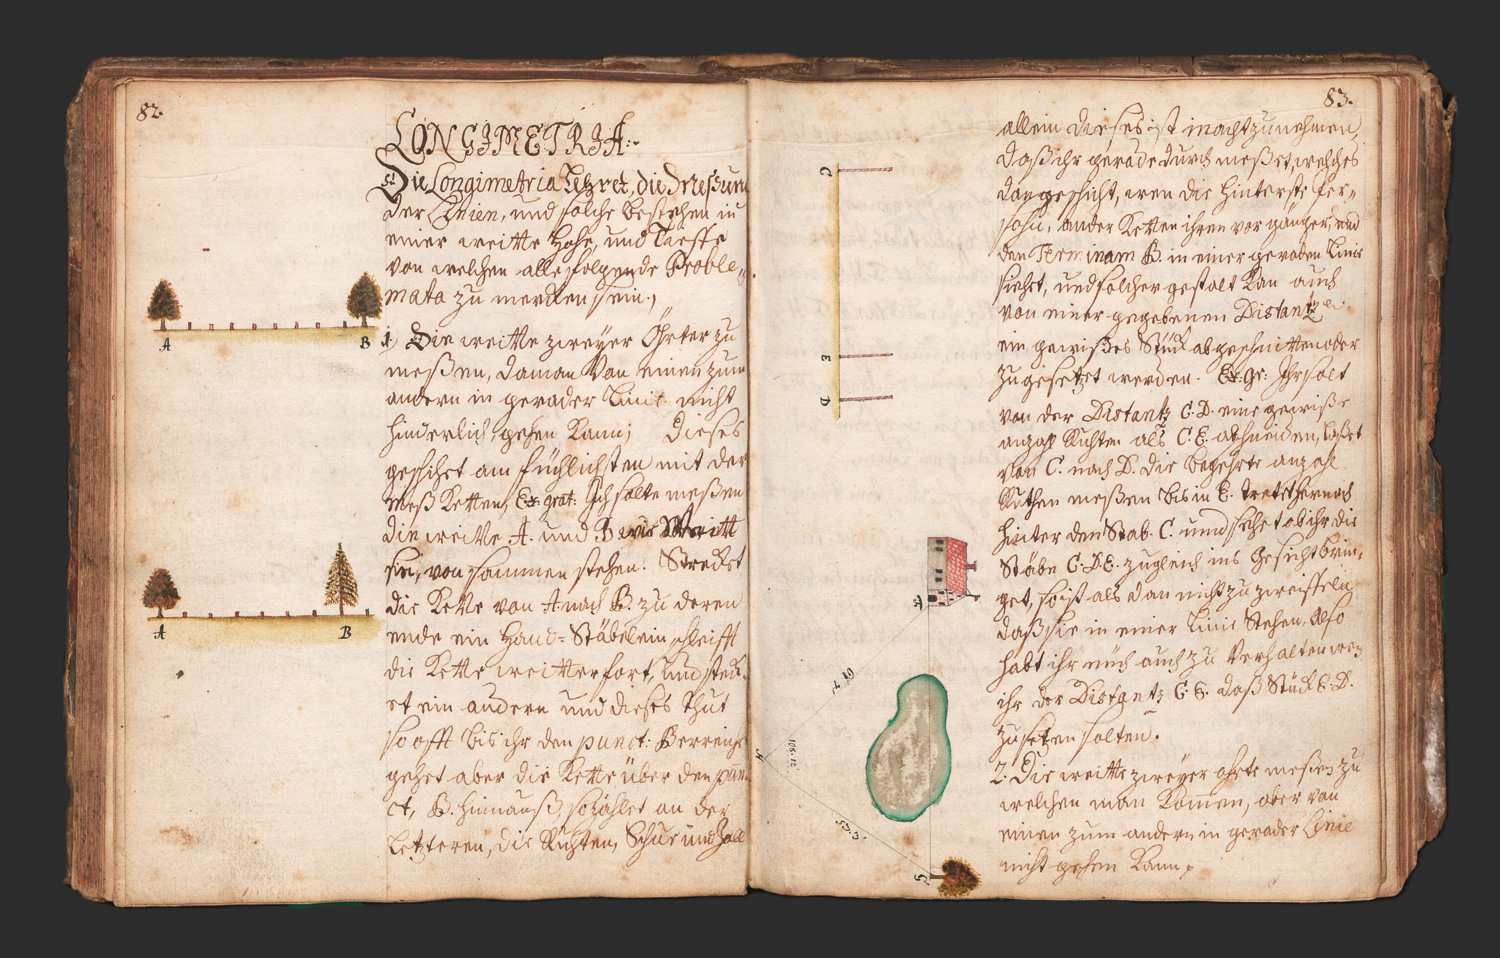 82.
LONGIMETRIA.
Die Longimetria Lehret, die Messung
der Linien, und solche bestehen in
einer weitte Höhe, und Tieffe
von welchen alle folgende Proble-
mata zu mercken sein.
1. Die weitte zweyer Öhrter zu
meßen, da man von einem zum
andern in gerader Linie nicht
hinderlich gehen kann; Dieses
geschihet am füchlichsten mit der
Meß Ketten, Ex. grat: Ich solte meßen
die weitte A. und B wie Weitt
sie, von sammen stehen: Strecket
die Kette von A nach B. zu deren
ende ein Hand-Stäbelein, schleifft
die Kette weitter fort, und steck-
et ein andern und dieses Thut
so offt bis ihr den punct: Berreicht
gehet aber die Kette über den pun-
ct, B. hinnauß, so zählet an der
Letzteren, die Ruhten, Schue und Zoll
A
B
A
B
83.
allein dieses ist inacht zunehmen,
daß ihr gerade durch meßet, welches
dan geschicht, wen die hinterste Per-
sohn, an der Ketten ihren vorgänger, und
den Terminum B. in einer geraden Linie
siehet, und solcher gestalt kan auch
von einer gegebenen Distantz
ein gewißes Stück abgeschnitten oder
zugesetzet werden. Ex: gr: Ihr solt
von der Distantz C. D. eine gewiße
anzahl Ruhten als C. E. abschneiden, laßet
von C. nach D. die begehrte anzahl
Ruthen meßen bis in E. Tretet hernach
hinter den Stab. C. und sehet ob ihr die
Stäbe C. D. E. zugleich ins Gesicht brin-
get, so ist als dan nicht zu zweiffelen
daß sie in einer Linie Stehen. Also
habt ihr euch auch zu Verhalten wen
ihr der Distantz C. E. daß Stück E. D.
zusetzen solten.
2. Die weitte zweyer ohrte meßen zu
welchen man kommen, aber von
einen zum andern in gerader Linie
nicht gehen kann,
C
E
D
F
61. 7.
106. 12.
H
53. 3.
G